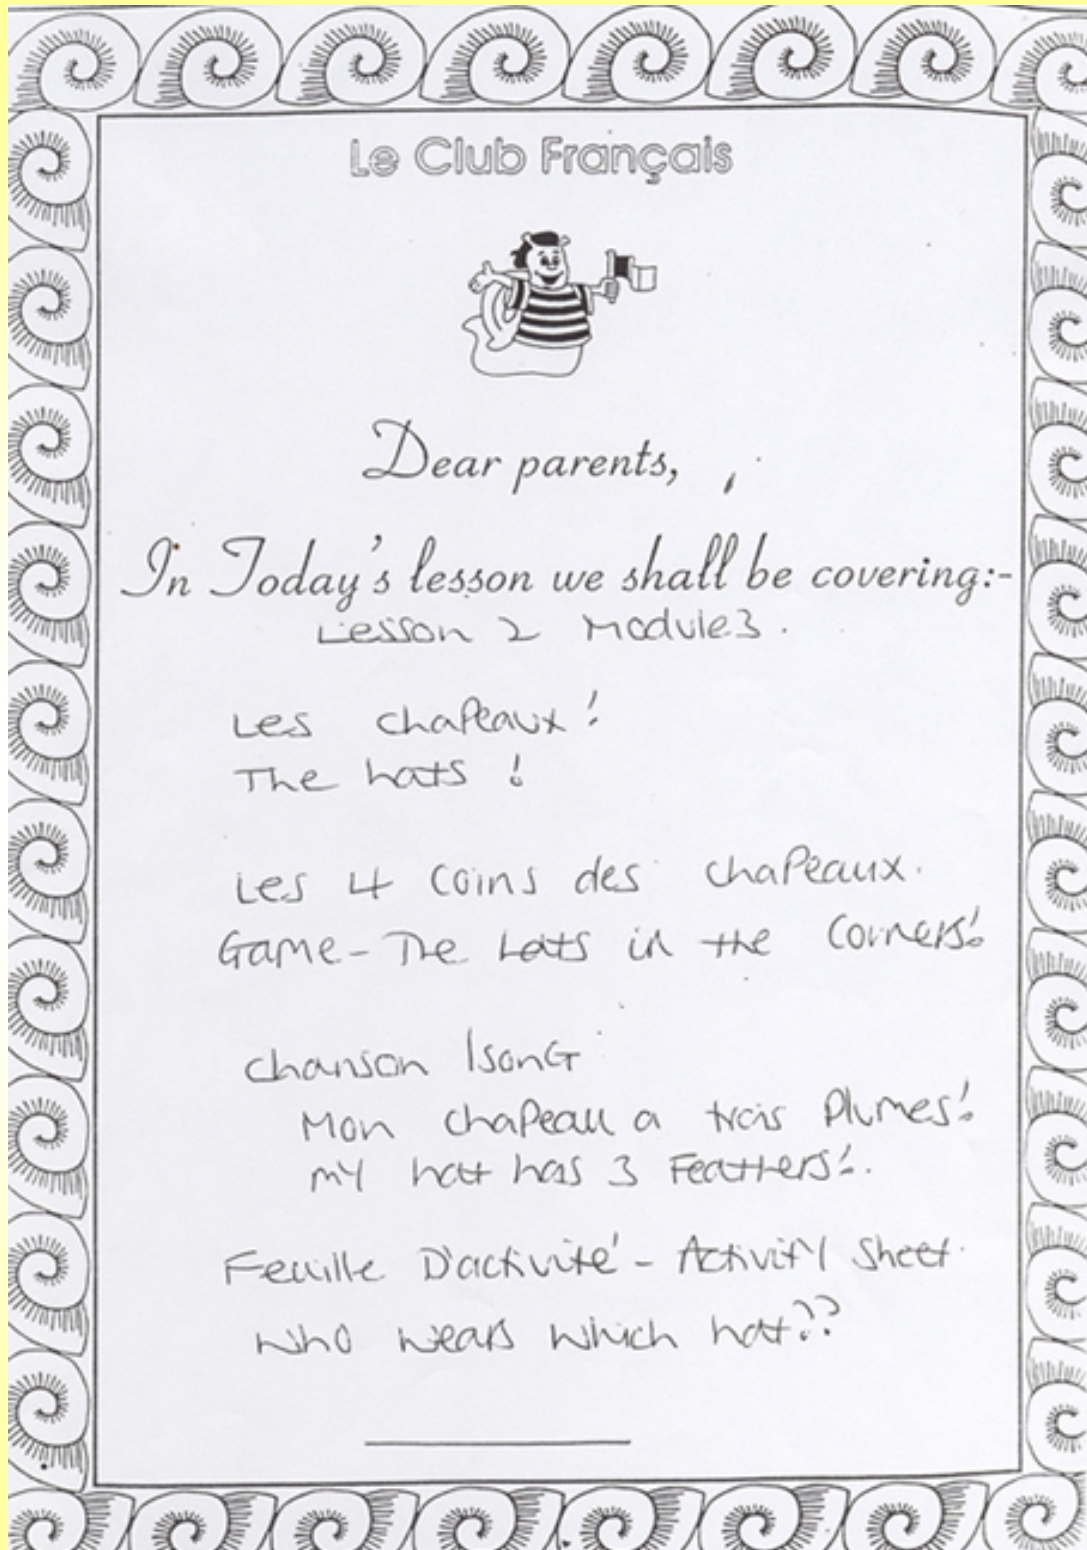 Le Club Français
Dear parents,
In Today's lesson we shall be covering:-
Lesson 2 Module 3.
Les chapeaux!
The hats!
Les 4 coins des chapeaux.
Game - The hats in the corners!
chanson / song
Mon chapeau a trois Plumes!
my hat has 3 Feathers!.
Feuille D'activité - Activity Sheet.
who wears which hat??